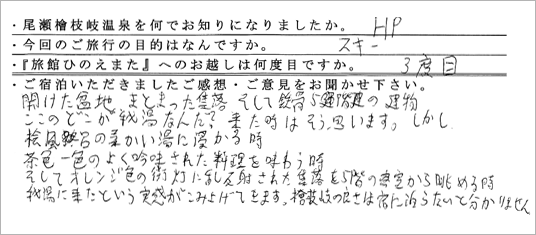 ・尾瀬檜枝岐温泉を何でお知りになりましたか。 HP
・今回のご旅行の目的はなんですか。 スキー
・『旅館ひのえまた』へのお越しは何度目ですか。 3度目
・ご宿泊いただきましたご感想・ご意見をお聞かせ下さい。
開けた盆地 まとまった集落 そして 5階建の建物
ここのどこが秘湯なんだ？来た時はそう思います。しかし
桧風呂の柔かい湯に浸かる時
茶色一色のよく吟味された料理を味わう時
そしてオレンジ色の街灯に乱反射された集落を5階の客室から眺める時
秘湯に来たという実感がこみ上げてきます。檜枝岐の良さは宿に泊らないと分かりません